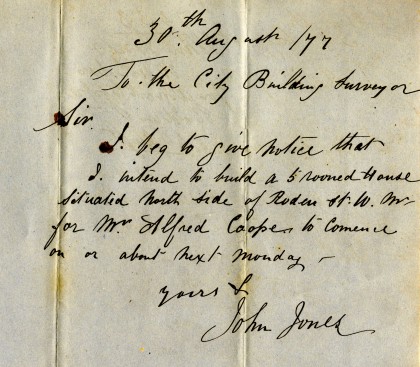 30.th August /77
To the City Building Surveyor
Sir.
I beg to give notice that
I. intend to build a 5 roomed House
situated North side of Roden st W. Mr
for Mr Alfred Cooper to Comence
on or about next Monday -
yours &
John Jones